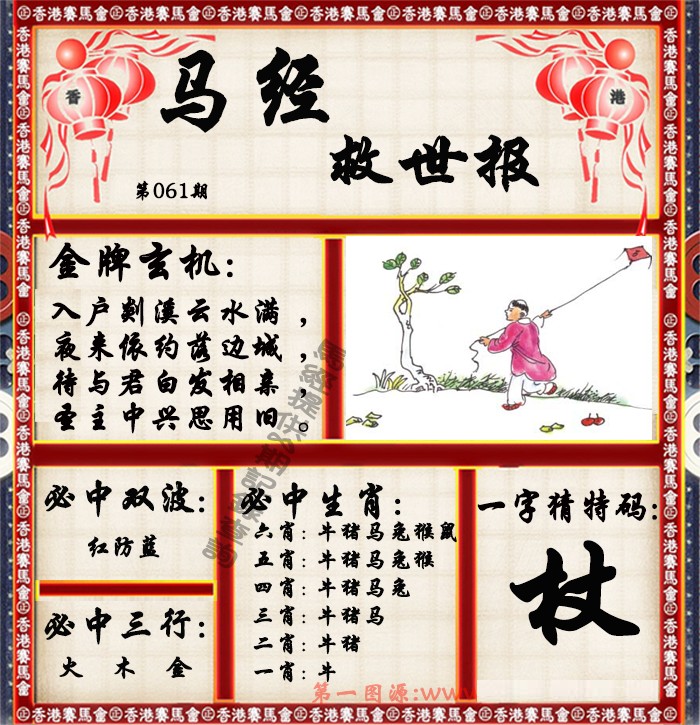 香港賽馬會
香
港
马经
救世报
第061期
金牌玄机：
入户剡溪云水满，
夜来依约落边城，
待与君白发相亲，
圣主中兴思用旧。
必中双波：
红防蓝
必中三行：
火 木 金
必中生肖：
六肖：牛猪马兔猴鼠
五肖：牛猪马兔猴
四肖：牛猪马兔
三肖：牛猪马
二肖：牛猪
一肖：牛
一字猜特码：
杖
第一图源:www